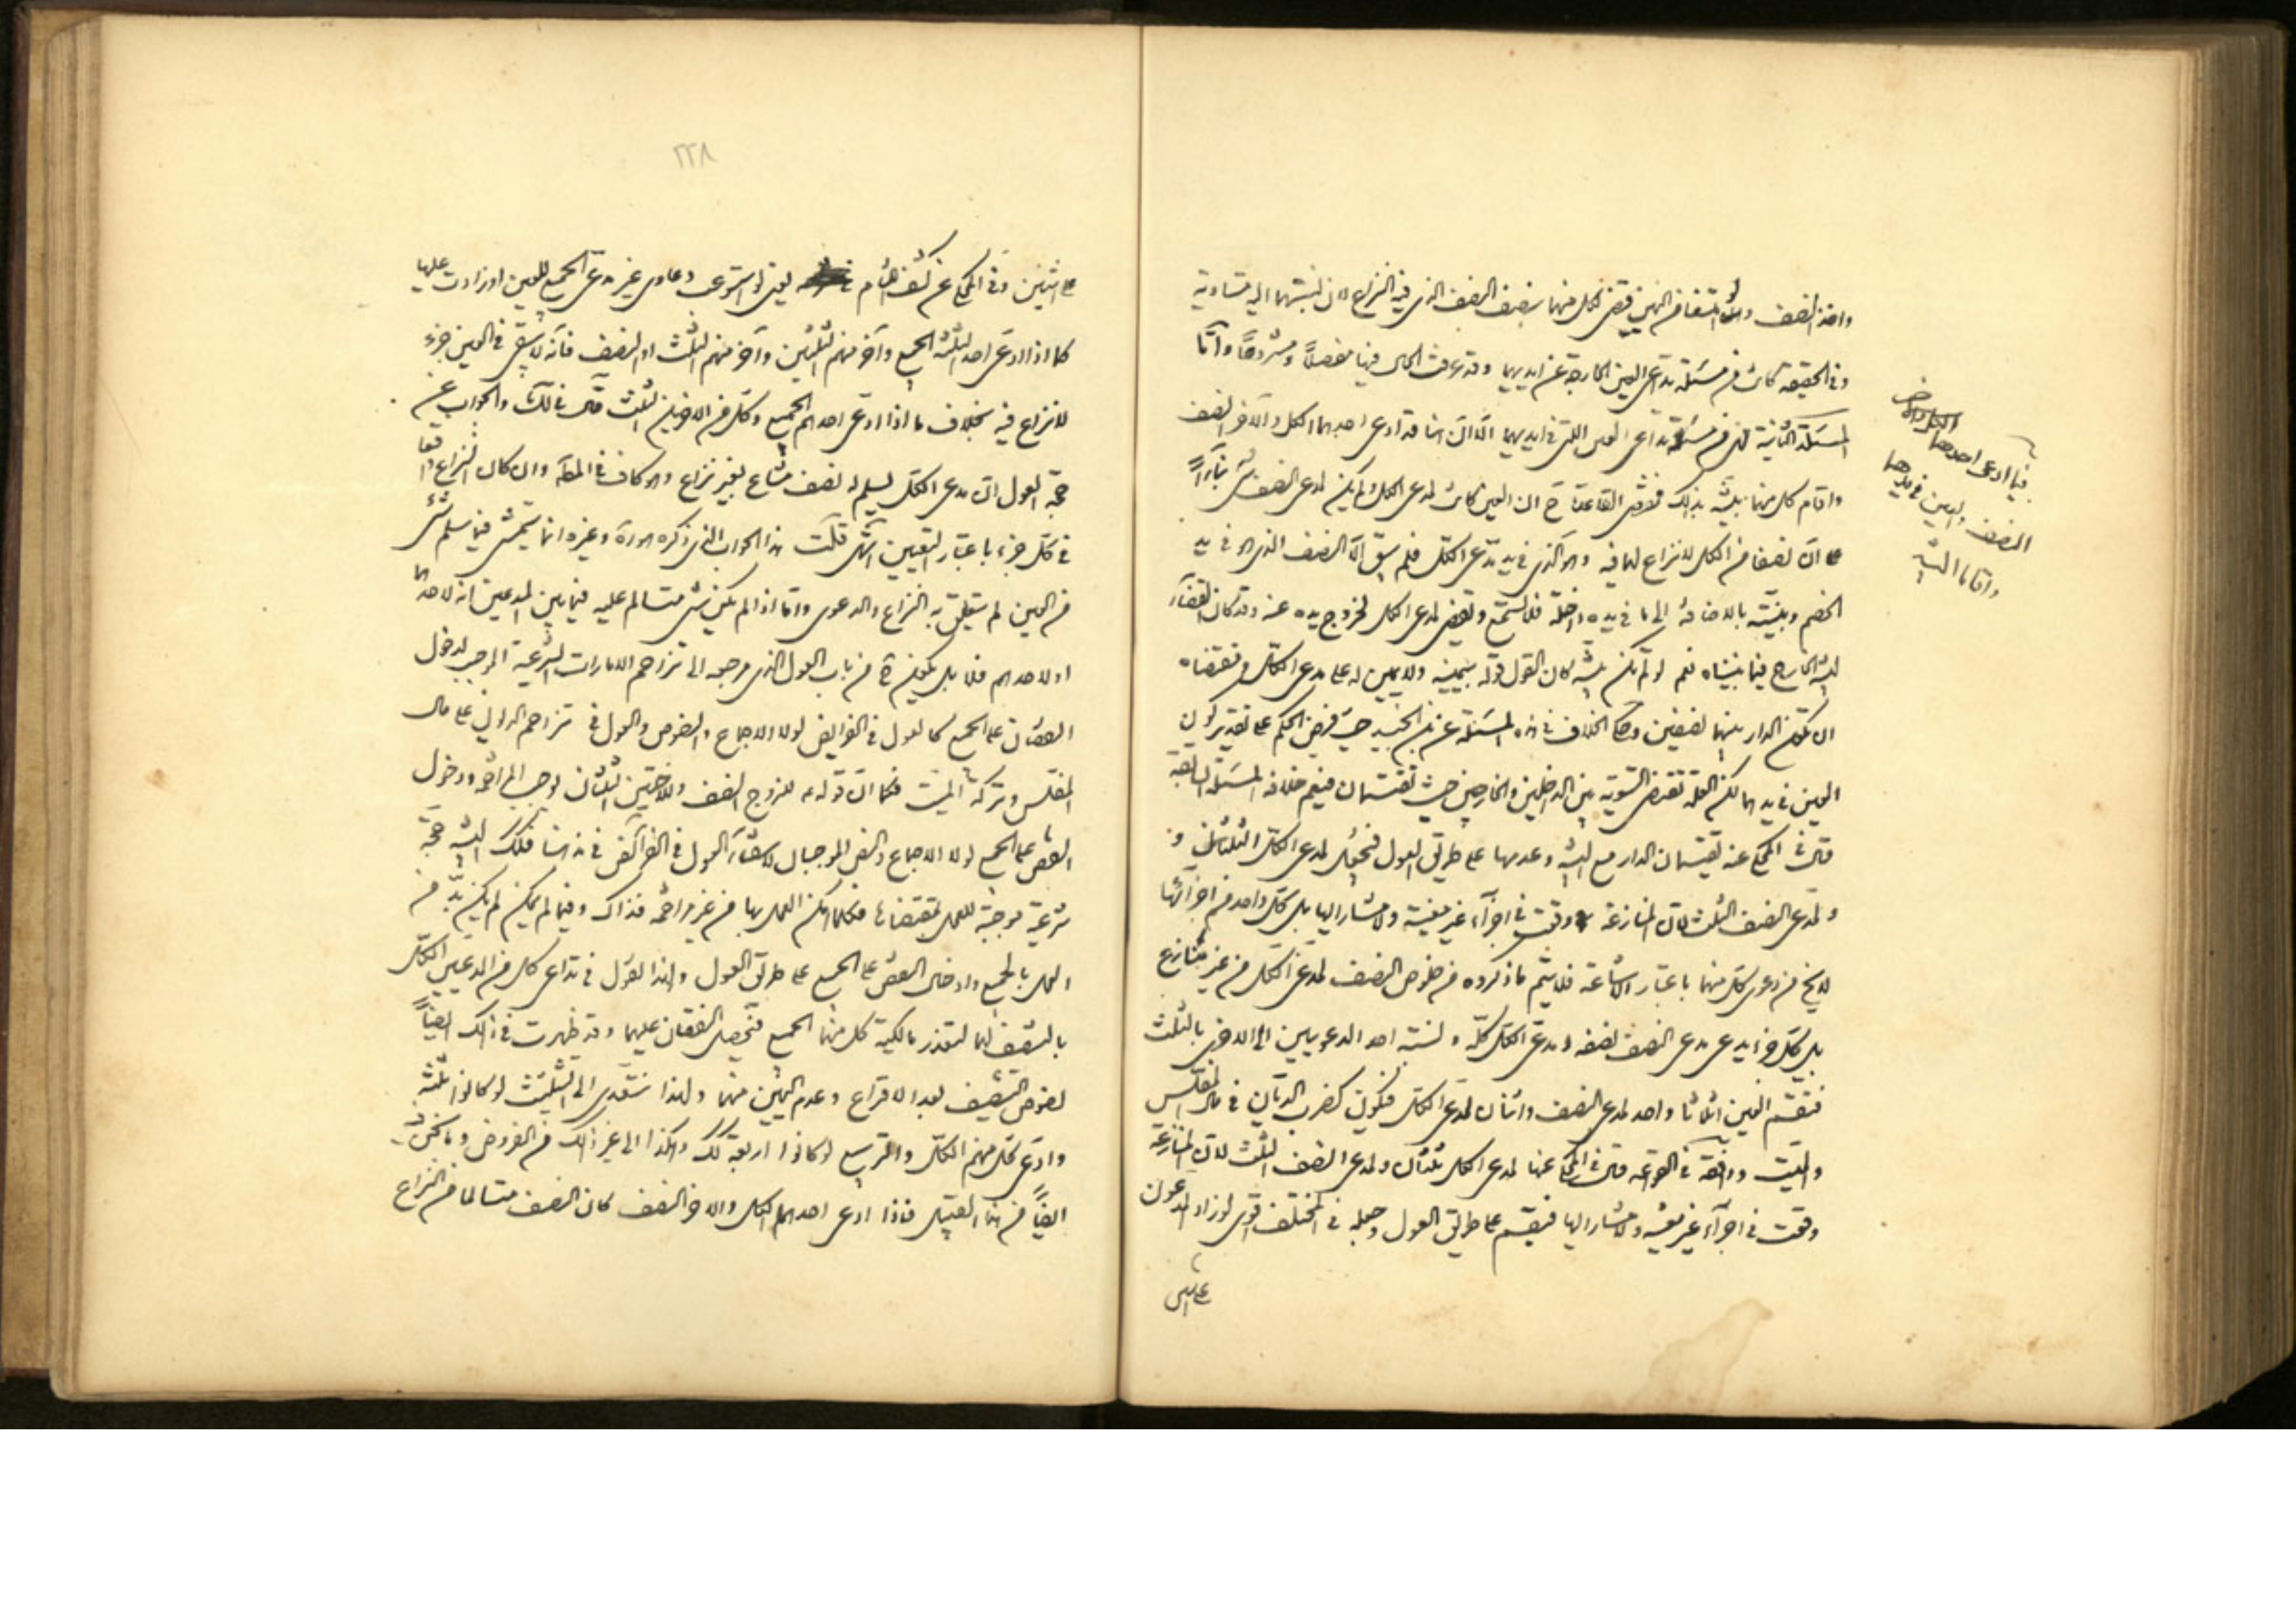 واخذ النصف ولو امتنعا من اليمين قضى لكل منهما بنصف النصف الذى فيه النزاع لان نسبتهما اليه متساوية
وفى الحقيقة كانت من مسئلة تداعى العين الخارجة عن ايديهما وقد عرفت الحال فيها مفصلاً ومشروحاً وامّا
المسئلة الثانية فهى من مسئلة تداعى العين التى فى ايديهما الّا انّ هنا قد ادعى احدهما الكل والآخر النصف
واقام كل منهما بيّنة بذلك فمقتضى القاعدة ح ان العين كانت لمدعى الكل ولم يكن لمدعى النصف شئ بناءً
على انّ نصفا من الكل لا نزاع لهما فيه وهو الذى فى يد مدّعى الكلّ فلم يبق الّا النصف الذى هو فى يد
الخصم وبيّنته بالاضافة الى ما فى يده داخلة فلا تسمع وتقضى لمدعى الكل لخروج يده عنه وقد كان القضآء
لبيّنة الخارج فيما بيّناه نعم لو لم تكن بيّنة كان القول قوله بيمينه ولا يمين له على مدعى الكلّ ومقتضاه
ان تكون الدار بينهما نصفين وحكى الخلاف فى هذه المسئلة عن ابن الجنيد حيث فرض الحكم على تقدير كون
العين فى يدهما لكن العلة تقتضى التسوية بين الداخلين والخارجين حيث تقتسمان فيعم خلافه المسئلة السابقة
قال فى المحكى عنه يقتسمان الدار مع البيّنة وعدمها على طريق العول فتجعل لمدعى الكلّ الثلثان و
ولمدعى النصف الثلث لانّ المنازعة وقعت فى اجزآء غير معينة ولا مشار اليها بل كلّ واحد من اجزآئها
لا يخ من دعوى كلّ منهما باعتبار الاشاعة فلا يتم ما ذكروه من خلوص النصف لمدعى الكل من غير منازع
بل كلّ جزء يدعى مدعى النصف نصفه ومدعى الكل كلّه ونسبة احد الدعويين الى الاخرى بالثلث
فتقسّم العين اثلاثا واحد لمدعى النصف واثنان لمدعى الكلّ فيكون كضرب الديّان فى مال المفلّس
والميّت ووافقه فى القواعد قال فى المحكى عنها لمدعى الكل ثلثان ولمدعى النصف الثلث لانّ المنازعة
وقعت فى اجزآء غير معيّنة ولا مشار اليها فيقسّم على طريق العول وجعله فى المختلف اقوى لو زاد المدعون
على اثنين
فيما ادعى احدهما الكل والاخر
النصف والعين فى يدهما
واقاما البيّنة
٢٢٨
على اثنين وفى المحكى عن كشف اللثام يعنى لو استوعب دعاوى غير مدعى الجميع للعين او زادت عليها
كما اذا ادعى احد الثلثة الجميع وآخر منهم الثلثين وآخر منهم الثلث او النصف فانّه لا يبقى فى العين جزء
لا نزاع فيه بخلاف ما اذا ادعى احدهم الجميع وكل من الاخرين الثلث قال فى ذلك والجواب عن
حجّة العول انّ مدعى الكل يسلم له نصف مشاع بغير نزاع وهو كاف فى المطلوب وان كان النزاع واقعا
فى كلّ جزء باعتبار التعيين انتهى قلت هذا الجواب الذى ذكره هو وغيره انما يتمشى فيما سلم شئ
من العين لم يتعلق به النزاع والدعوى وامّا اذا لم يكن شئ متسالم عليه فيما بين المدعيين انّه لاحدهما
او لاحدهم فلا بل يكون ح من باب العول الذى مرجعه الى تزاحم الامارات الشرعية الموجب لدخول
النقصان على الجميع كما نقول فى الفرايض لولا الاجماع والنصوص والعول فى تزاحم الديون على مال
المفلّس وتركة الميّت فكما انّ قوله للزوج النصف وللاختين الثلثان يوجب المزاحمة ودخول
النقص على الجميع لولا الاجماع والنص الموجبان لانتفآء العول فى الفرآئض فى مذهبنا فكذلك البيّنة حجّة
شرعيّة موجبة للعمل بمقتضاها فكلما امكن العمل بها من غير مزاحمة فذاك وفيما لم يمكن لم يكن بدّ من
العمل بالجميع وادخال النقص على الجميع على طريق العول ولهذا نقول فى تداعى كل من المدعيين الكلّ
بالتنصيف لهما لتعذر مالكية كل منهما الجميع فتحصل النقصان عليهما وقد ظهرت فى ذلك ايضاً
نصوص التنصيف بعد الاقراع وعدم اليمين منهما ولهذا نتعدى الى التثليث لو كانوا ثلثة
وادعى كلّ منهم الكلّ والتربيع لو كانوا اربعة كك وهكذا الى غير ذلك من الفروض وما نحن فيه
ايضاً من هذا القبيل فاذا ادعى احدهما الكل والاخر النصف كان النصف متسالما من النزاع